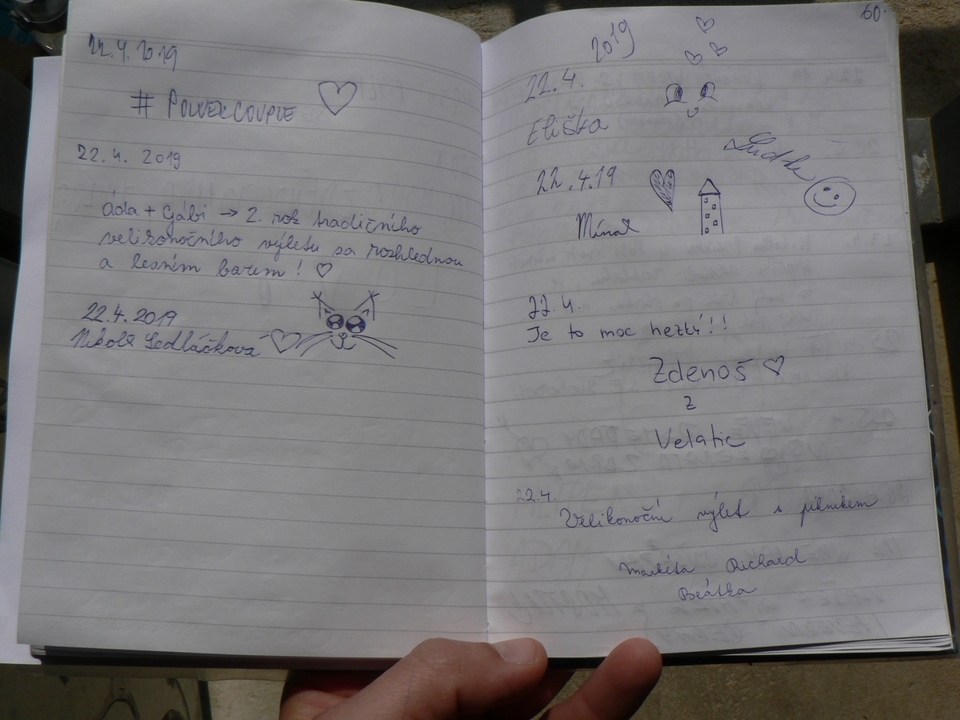 22.4.2019
# POWERCOUPLE
22.4. 2019
Áďa + Gábi → 2. rok tradičního
velikonočního výletu za rozhlednou
a lesním barem!
22.4.2019
Nikola Sedláčková
60.
2019
22.4.
Eliška
22.4.19
22.4.
Je to moc hezký!!
Zdenoš
z
Velatic
22.4.
Velikonoční výlet s piknikem
Markéta Richard
Beátka